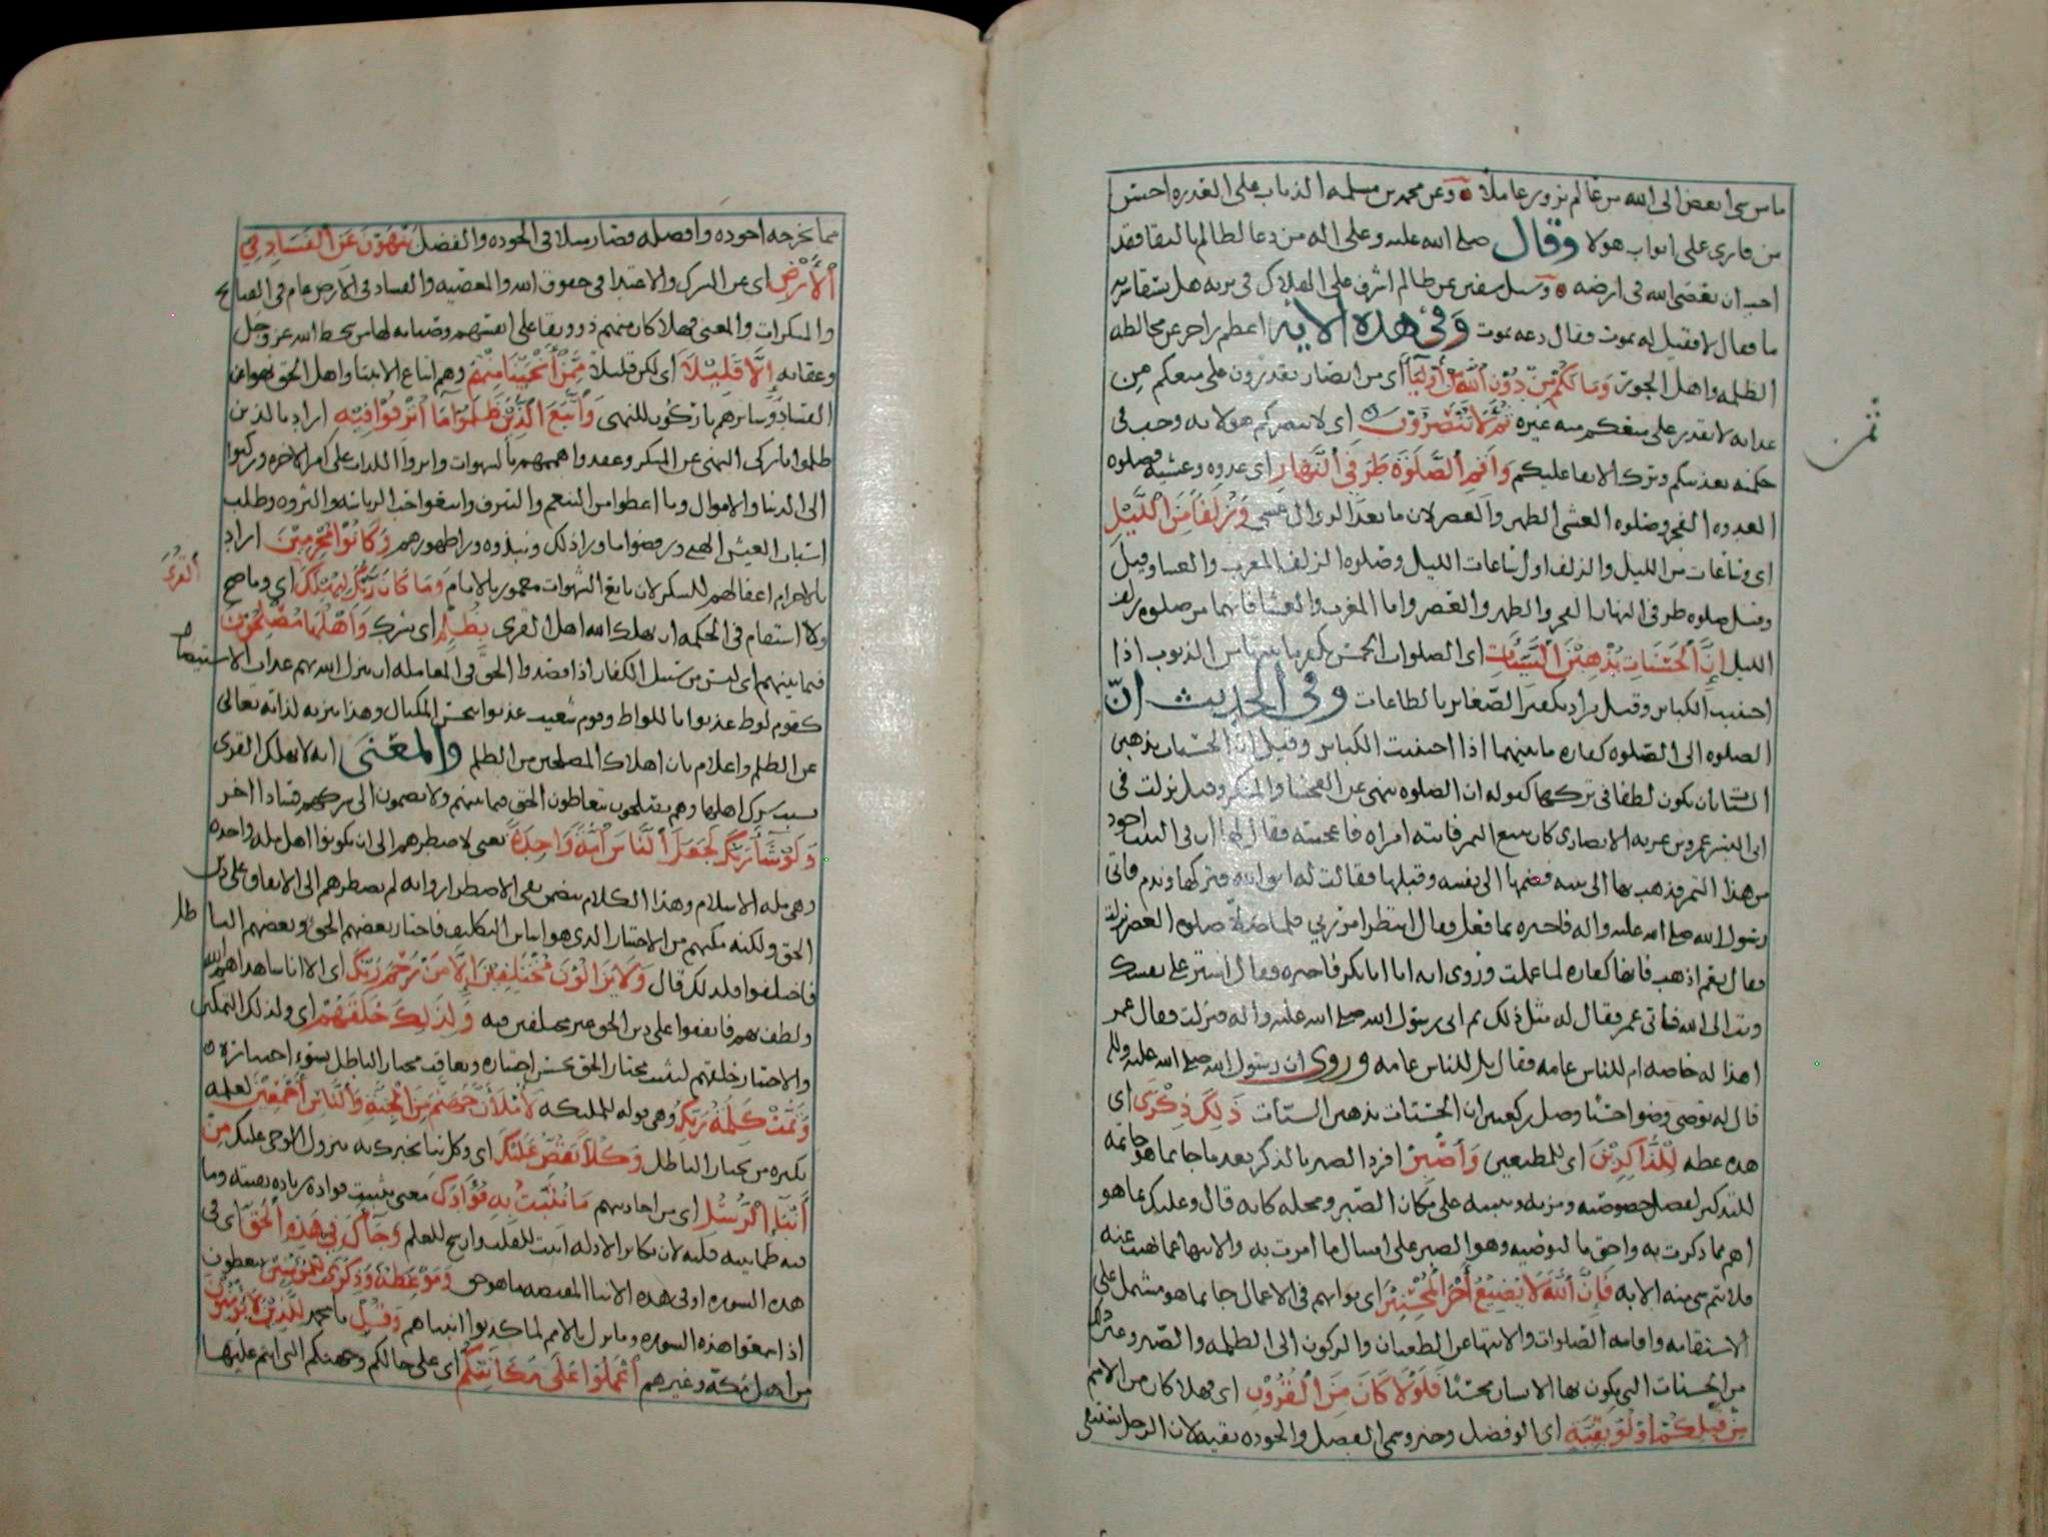 ما من شي ابغض الى الله من عالم يزور عاملا وعن محمد بن مسلمه الذباب على العذره احسن
من قاري على ابواب هولا وقال صلى الله عليه وعلى اله من دعا لظالم بالبقا فقد
احب ان يعصى الله في ارضه وسئل سفين عن ظالم اشرف على الهلاك في بريه هل يسقا شربه
ما فقال لا فقيل له يموت فقال دعه يموت وفي هذه الايه اعظم زاجر عن مخالطه
الظلمه واهل الجور وَمَا لَكُمْ مِنْ دُوْنِ اللَّهِ مِنْ أَوْلِيَآءَ اى من انصار يقدرون على منعكم من
عذابه لا يقدر على منعكم منه غيره ثُمَّ لَا تُنْصَرُوْنَ اى لا ينصركم هو لانه وجب في
حكمته تعذيبكم وترك الابقا عليكم وَأَقِمِ الصَّلٰوةَ طَرَفَيِ النَّهَارِ اى غدوه وعشيه فصلوه
الغدوه الفجر وصلوه العشى الظهر والعصر لان ما بعد الزوال عشي وَزُلَفًا مِنَ اللَّيْلِ
اى وساعات من الليل والزلف اول ساعات الليل وصلوه الزلف المغرب والعشا وقيل
وقيل صلوه طرفى النهار الفجر والظهر والعصر واما المغرب والعشا فانهما من صلوه زلف
الليل إِنَّ الْحَسَنَاتِ يُذْهِبْنَ السَّيِّئَاتِ اى الصلوات الخمس يكفر ما بينها من الذنوب اذا
اجتنبت الكباير وقيل يراد تكفير الصغاير بالطاعات وفي الحديث انّ
الصلوه الى الصلوه كفاره ما بينهما اذا اجتنبت الكباير وقيل ان الحسنات يذهبن
السيئات بان يكون لطفا في تركها كقوله ان الصلوه تنهى عن الفحشا والمنكر وقيل نزلت في
ابى اليسر عمرو بن عزيه الانصارى كان يبيع التمر فاتته امراه فاعجبته فقال لها ان في البيت اجود
من هذا التمر فذهب بها الى بيته فضمها الى نفسه وقبلها فقالت له اتق الله فتركها وندم فاتى
رسول الله صلى الله عليه واله فاخبره بما فعل فقال انتظر امر ربي فلما صلى صلوه العصر نزلت
فقال نعم اذهب فانها كفاره لما عملت وروى انه اتا ابا بكر فاخبره فقال استر على نفسك
وتب الى الله فاتى عمر فقال له مثل ذلك ثم اتى رسول الله صلى الله عليه واله فنزلت فقال عمر
اهذا له خاصه ام للناس عامه فقال بل للناس عامه وروى ان رسول الله صلى الله عليه واله
قال له توضى وضوا حسنا وصل ركعتين ان الحسنات يذهبن السيئات ذَلِكَ ذِكْرَى اى
هذه عظه لِلذَّاكِرِيْنَ اى للمتعظين وَأَصْبِرْ افرد الصبر بالذكر بعد ما جا بما هو خاتمه
للتذكير لفضل خصوصيه ومزيه وتنبيه على مكان الصبر ومحله كانه قال وعليك بما هو
اهم مما ذكرت به واحق بالتوصيه وهو الصبر على امتثال ما امرت به والانتها عما نهيت عنه
فلا يتم شى منه الا به فَإِنَّ اللَّهَ لَا يُضِيْعُ أَجْرَ الْمُحْسِنِيْنَ اى ثوابهم في الاعمال جا بما هو مشتمل على
الاستقامه واقامه الصلوات والانتها عن الطغيان والركون الى الظلمه والصبر وغير ذلك
من الحسنات التى يكون بها الانسان محسنا فَلَوْلَا كَانَ مِنَ الْقُرُوْنِ اى فهلا كان من الامم
مِنْ قَبْلِكُمْ أُولُو بَقِيَّةٍ اى الو فضل وخير وسمى الفضل والجوده بقيه لان الرجل يستبقى
ثمن
مما يخرجه اجوده وافضله فصار مثلا في الجوده والفضل يَنْهَوْنَ عَنِ الْفَسَادِ فِي
الْأَرْضِ اى عن الشرك والاعتدا في حقوق الله والمعصيه والفساد في الارض عام في القبايح
والمنكرات والمعنى فهلا كان منهم ذوو بقا على انفسهم وصيانه لها من سخط الله عز وجل
وعقابه إِلَّا قَلِيْلًا اى لكن قليلا مِمَّنْ أَنْجَيْنَا مِنْهُمْ وهم اتباع الانبيا واهل الحق نهوا عن
الفساد وسايرهم تاركون للنهى وَاتَّبَعَ الَّذِيْنَ ظَلَمُوْا مَا أُتْرِفُوْا فِيْهِ اراد بالذين
ظلموا تاركى النهى عن المنكر وعقدوا هممهم بالشهوات واثروا اللذات على امر الاخره وركنوا
الى الدنيا والاموال وما اعطوا من التنعم والترف واتبعوا حب الرياسه والثروه وطلب
اسباب العيش الهني ورفضوا ما ورا ذلك ونبذوه ورا ظهورهم وَكَانُوْا مُجْرِمِيْنَ اراد
بالاجرام اغفالهم للشكر لان تابع الشهوات مغمور بالاثام وَمَا كَانَ رَبُّكَ لِيُهْلِكَ اى وما صح
القُرَى
ولا استقام في الحكمه ان يهلك الله اهل القرى بِظُلْمٍ اى بشرك وَأَهْلُهَا مُصْلِحُوْنَ
فيما بينهم اى ليس من سبيل الكفار اذا قصدوا الحق في المعامله ان ينزل الله بهم عذاب الاستيصال
كقوم لوط عذبوا باللواط وقوم شعيب عذبوا ببخس المكيال وهذا تنزيه لذاته تعالى
عن الظلم واعلام بان اهلاك المصلحين من الظلم والمعنى انه لا يهلك القرى
بسبب شرك اهلها وهم مصلحون يتعاطون الحق فيما بينهم ولا يضمون الى شركهم فسادا اخر
وَلَوْ شَآءَ رَبُّكَ لَجَعَلَ النَّاسَ أُمَّةً وَاحِدَةً يعنى لاضطرهم الى ان يكونوا اهل مله واحده
وهى مله الاسلام وهذا الكلام يتضمن نفى الاضطرار وانه لم يضطرهم الى الاتفاق على دين
الحق ولكنه مكنهم من الاختيار الذى هو اساس التكليف فاختار بعضهم الحق وبعضهم الباطل
فاختلفوا فلذلك قال وَلَا يَزَالُوْنَ مُخْتَلِفِيْنَ إِلَّا مَنْ رَحِمَ رَبُّكَ اى الا اناسا هداهم الله
ولطف بهم فاتفقوا على دين الحق غير مختلفين فيه وَلِذَلِكَ خَلَقَهُمْ اى ولذلك التمكين
والاختيار خلقهم ليثيب مختار الحق بحسن اختياره ويعاقب مختار الباطل بسوء اختياره
وَتَمَّتْ كَلِمَةُ رَبِّكَ وهى قوله للمليكه لَأَمْلَأَنَّ جَهَنَّمَ مِنَ الْجِنَّةِ وَالنَّاسِ أَجْمَعِيْنَ لعلمه
بكثره من يختار الباطل وَكُلًّا نَقُصُّ عَلَيْكَ اى وكل نبا نخبرك به بنزول الوحى عليك مِنْ
أَنْبَآءِ الرُّسُلِ اى من اخبارهم مَا نُثَبِّتُ بِهِ فُؤَادَكَ معنى تثبيت فواده زياده يقينه وما
فيه طمانينه قلبه لان تكاثر الادله اثبت للقلب وارسخ للعلم وَجَآءَكَ فِيْ هَذِهِ الْحَقُّ اى في
هذه السوره او في هذه الانبا المقتصه ما هو حق وَمَوْعِظَةٌ وَذِكْرَى لِلْمُؤْمِنِيْنَ يتعظون
اذا سمعوا هذه السوره وما نزل بالامم لما كذبوا انبياهم وَقُلْ يا محمد لِلَّذِيْنَ لَا يُؤْمِنُوْنَ
من اهل مكة وغيرهم اعْمَلُوْا عَلَى مَكَانَتِكُمْ اى على حالكم وجهتكم التى انتم عليها